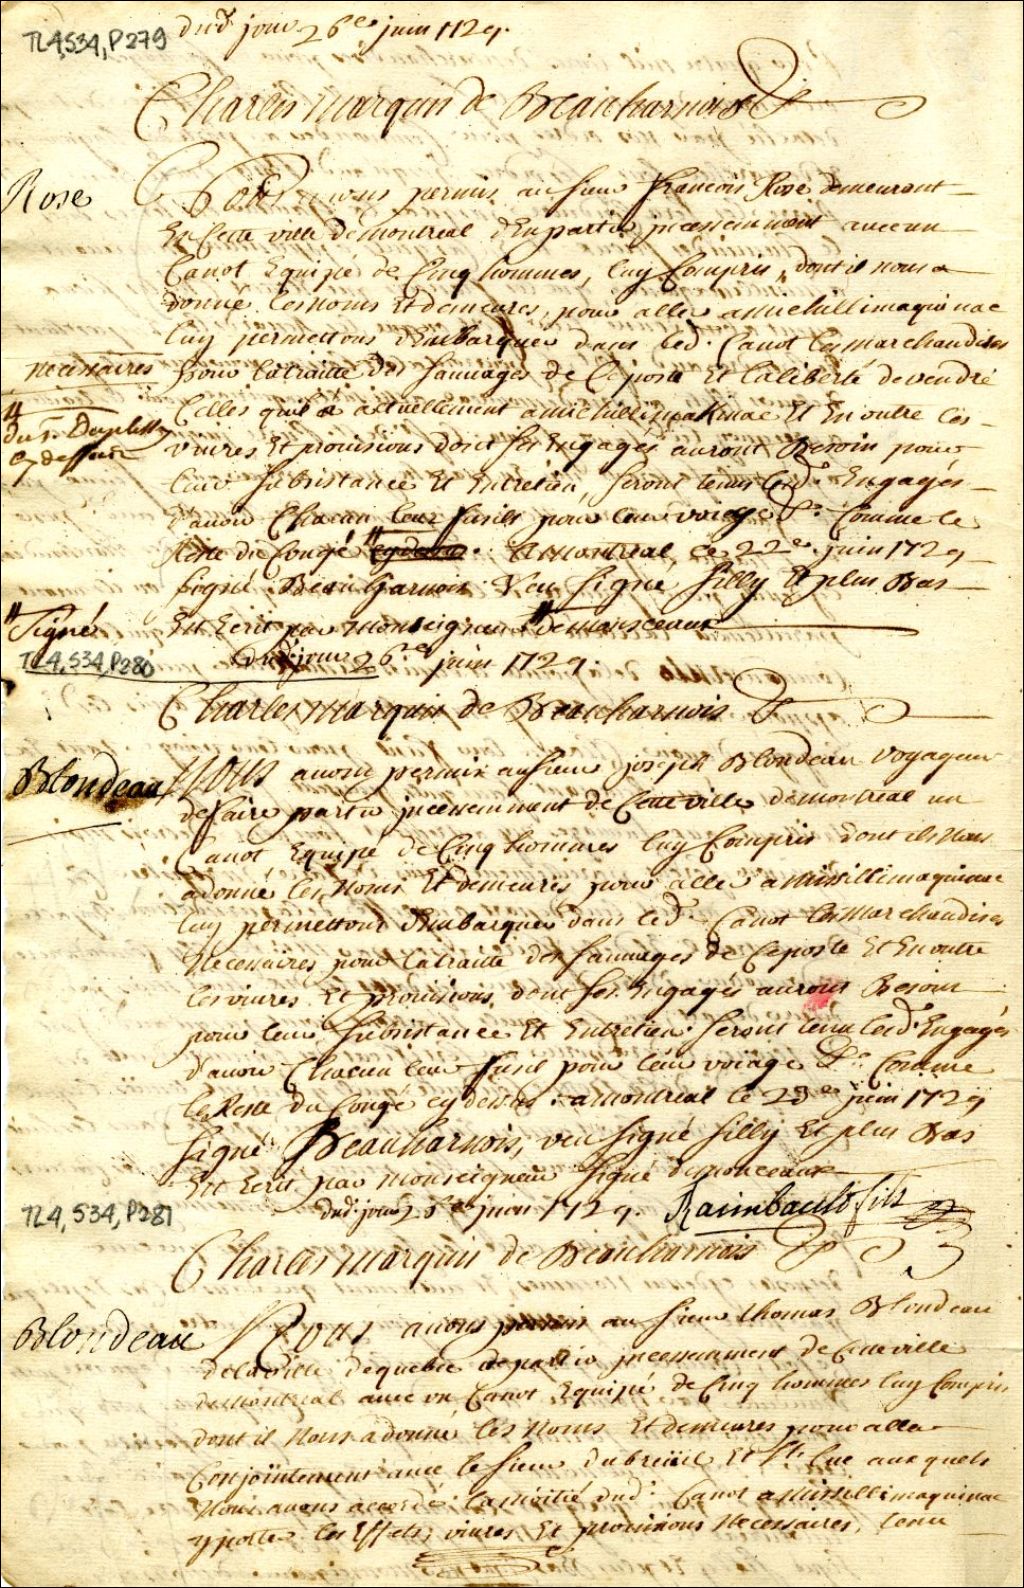 TL4,S34,P279
Dud. jour 26e juin 1729.
Charles Marquis de Beauharnois &c
Rose
Nous avons permis au sieur francois Rose demeurant
En Cette ville de montreal d'En partir jncessemment avec un
Canot Equipé de Cinq hommes, luy Compris, dont il nous a
donné les noms Et demeures, pour aller a michillimaquinac
luy permettons d'Embarquer dans led. Canot les marchandises
necessaires
pour la traitte des sauvages de Ce poste Et la liberté de vendre
Celles quil a actuellement a michillimakinac Et En outre les
du s. Duplessy
cy dessus
vivres Et provisions dont ses Engagés auront Besoin pour
leur subsistance Et Entretien, seront tenus lesd. Engagés
d'avoir Chacun leur fusils pour leur voiage &c. Comme le
Reste du Congé cy dessus. a montreal, ce 22e. juin 1729
signé Beauharnois Veu signé silly Et plus Bas
Signé
Est Ecrit par monseigneur demonceaux
TL4,S34,P280
Dud. jour 26e juin 1729.
Charles marquis de Beauharnois &c
Blondeau
Nous avons permis au sieur joseph Blondeau voyageur
de faire partir jncessemment de Cette ville de montreal un
Canot Equipé de Cinq hommes luy Compris dont ils nous
a donné les Noms Et demeures pour aller a missillimaquinac
luy permettons d'Embarquer dans led. Canot les marchandises
Necessaires pour la traitte des sauvages de Ce poste Et En outre
les vivres Et provisions, dont ses Engagés auront Besoin
pour leur subsistance Et Entretien. seront tenu lesd. Engagés
d'avoir Chacun leur fusil pour leur voiage &c. Comme
le Reste du Congé cy dessus. a montreal le 23e juin 1729
signé Beauharnois, veu signé silly Et plus Bas
Est Ecrit par monseigneur signé demonceaux
Raimbault fils
TL4,S34,P281
Dud. jour 26e juin 1729.
Charles marquis de Beauharnois &c
Blondeau
Nous avons permis au sieur thomas Blondeau
de la ville de quebec de partir jncessemment de Cette ville
de montreal avec un Canot Equipé de Cinq hommes luy Compris
dont il Nous a donné les Noms Et demeures pour aller
Conjointement avec le sieur dubreüil Et st. Luc aux quels
Nous avons accordé la moitié dud. Canot a missillimaquinac
y porter les Effets, vivres Et provisions Necessaires, tenu